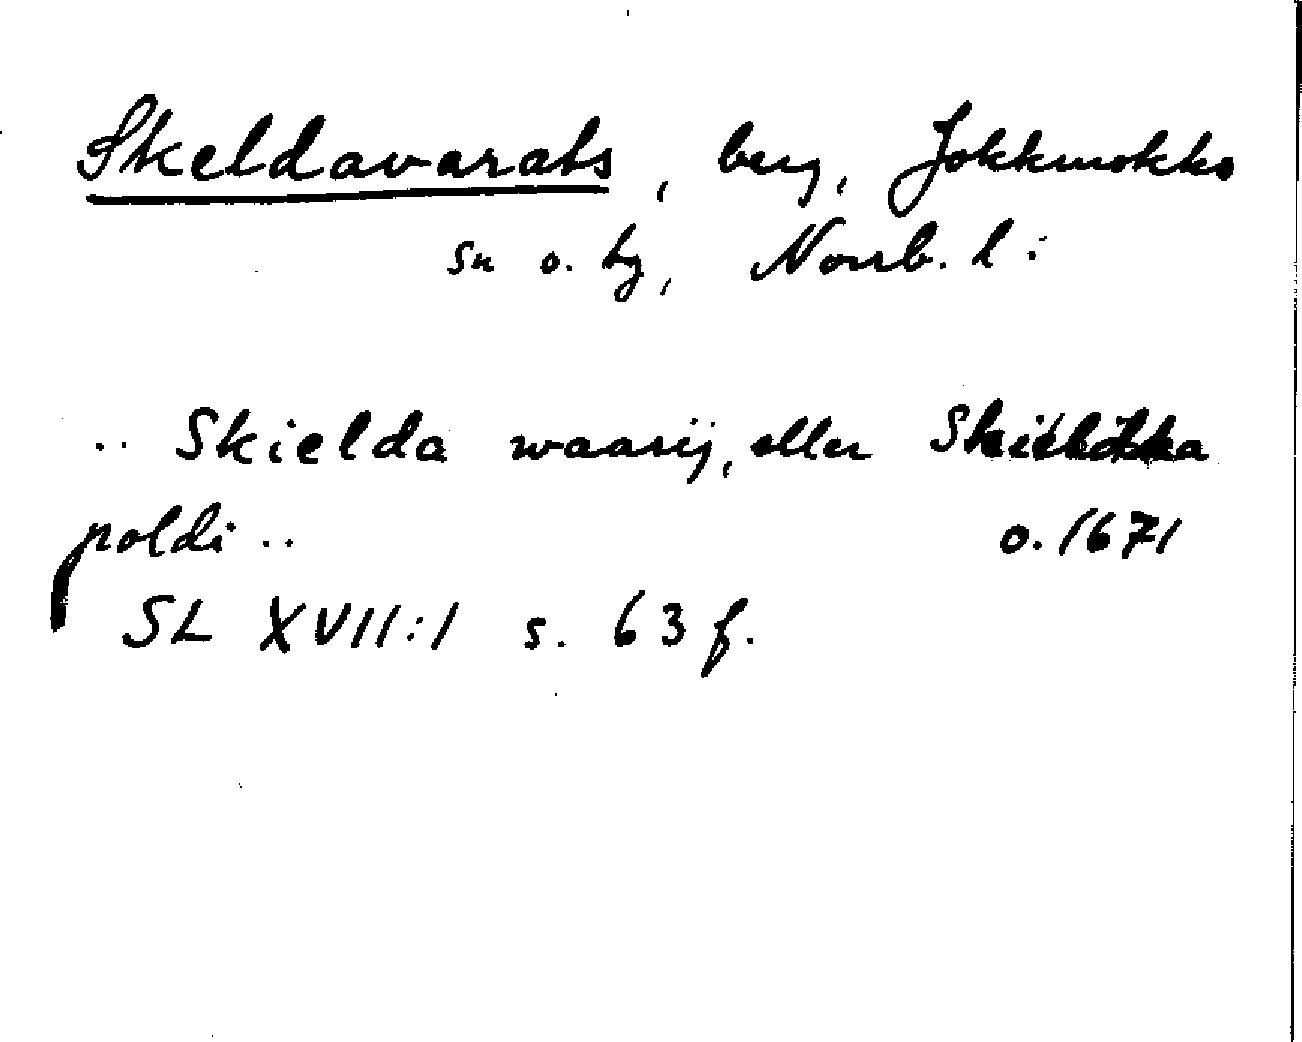 Skeldavarats, berg, Jokkmokks
sn o. tg, Norrb. l:
.. Skielda waarij, eller
poldi .. o. 1671
SL XVII:1 s. 63 f.